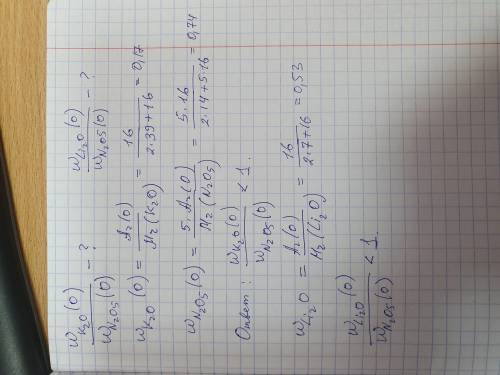 W K₂O (O) / W N₂O5 (O) - ?   W Li₂O (O) / W N₂O5 (O) - ?
W K₂O (O) = Ar(O) / Mr(K₂O) = 16 / 2·39+16 = 0,17
W N₂O5 (O) = 5·Ar(O) / Mr(N₂O5) = 5·16 / 2·14+5·16 = 0,74
Ответ: W K₂O (O) / W N₂O5 (O) < 1.
W Li₂O = Ar(O) / Mr(Li₂O) = 16 / 2·7+16 = 0,53
W Li₂O (O) / W N₂O5 (O) < 1.